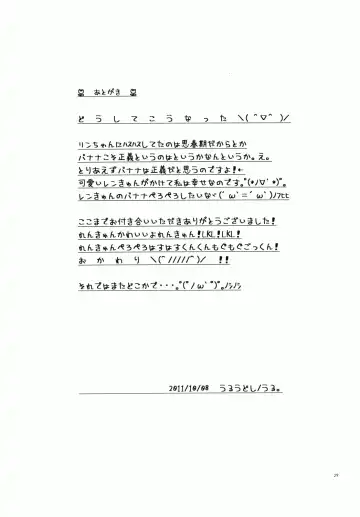 あとがき
どうしてこうなった＼(^▽^)／
リンちゃんにﾊｽﾊｽしてたのは思春期だからとか
バナナこそ正義というのはというかなんというか。え。
とりあえずバナナは正義だと思うのですよ!←
可愛いレンきゅんがかけて私は幸せなのです。
レンきゅんのバナナぺろぺろしたいなヾ(
ここまでお付き合いいただきありがとうございました!
れんきゅんかわいいよれんきゅん!LKL!LKL!
れんきゅんぺろぺろはすはすくんくんもぐもぐごっくん!
おかわり ＼(^/////^)／ !!
それではまたどこかで・・・。
2011/10/08 うるうどし/うる。